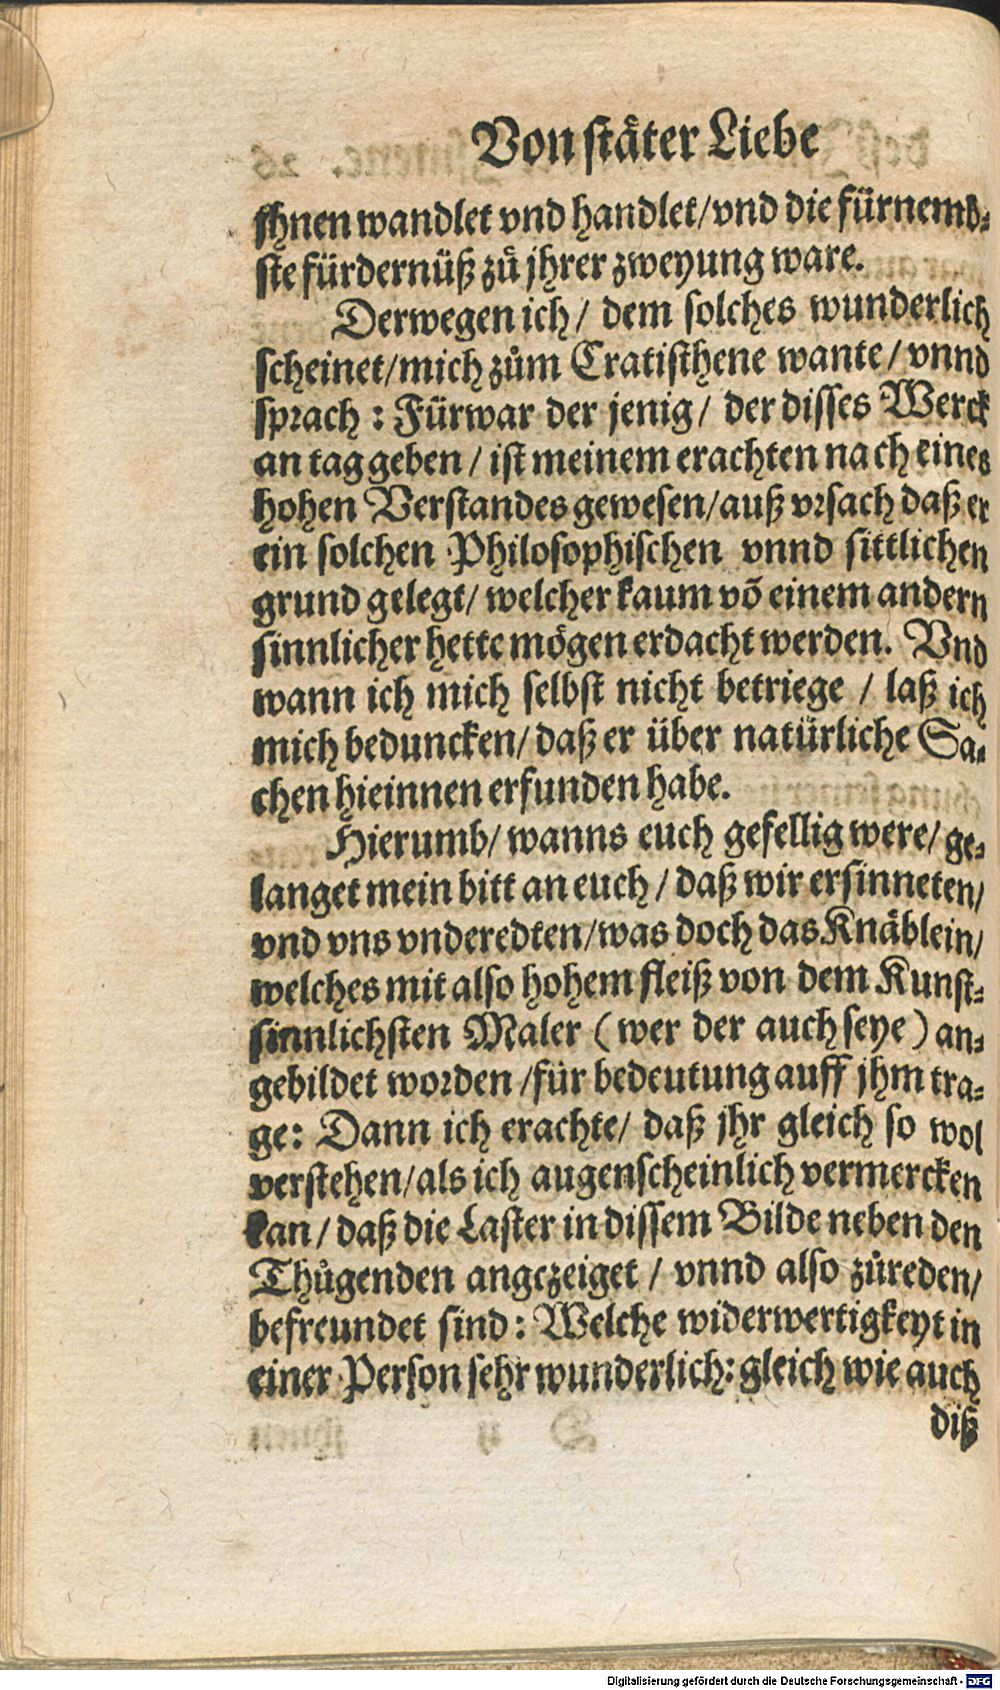 Von stäter Liebe
jhnen wandlet vnd handlet/vnd die fürnemb-
ste fürdernüß zů jhrer zweyung ware.
Derwegen ich/ dem solches wunderlich
scheinet/mich zům Cratisthene wante/ vnnd
sprach: Fürwar der jenig/ der disses Werck
an tag geben/ ist meinem erachten nach eines
hohen Verstandes gewesen/auß vrsach daß er
ein solchen Philosophischen vnnd sittlichen
grund gelegt/ welcher kaum võ einem andern
sinnlicher hette mögen erdacht werden. Vnd
wann ich mich selbst nicht betriege / laß ich
mich beduncken/ daß er über natürliche Sa-
chen hieinnen erfunden habe.
Hierumb/ wanns euch gefellig were/ ge-
langet mein bitt an euch/ daß wir ersinneten/
vnd vns vnderedten/was doch das Knäblein/
welches mit also hohem fleiß von dem Kunst-
sinnlichsten Maler (wer der auch seye) an-
gebildet worden/für bedeutung auff jhm tra-
ge: Dann ich erachte/ daß jhr gleich so wol
verstehen/als ich augenscheinlich vermercken
kan/ daß die Laster in dissem Bilde neben den
Thůgenden angezeiget / vnnd also zůreden/
befreundet sind: Welche widerwertigkeyt in
einer Person sehr wunderlich: gleich wie auch
diß
Digitalisierung gefördert durch die Deutsche Forschungsgemeinschaft - DFG